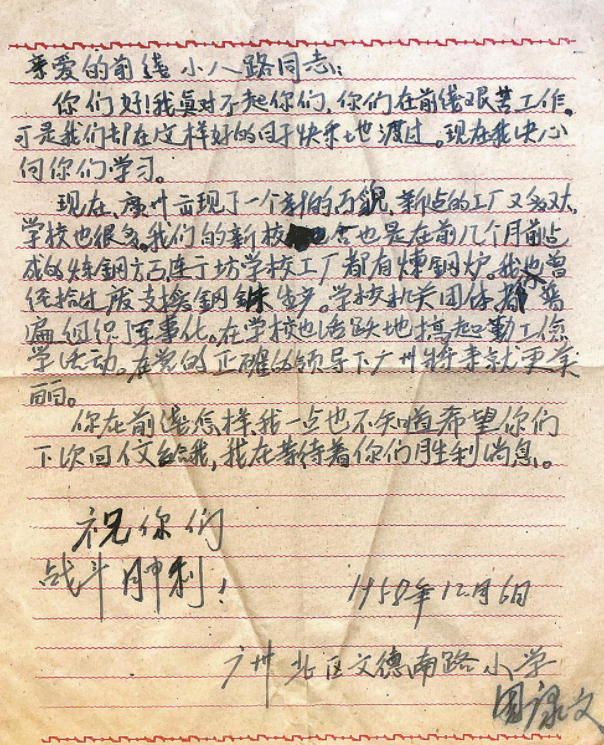 亲爱的前线小八路同志:
你们好!我真对不起你们,你们在前线艰苦工作。
可是我们却在这样好的日子快乐地渡过。现在我决心
向你们学习。
现在,广州出现了一个新的面貌,新点的工厂又多又大,
学校也很多。我们的新校舍也是在前几个月前
成的炼鋼方法连干坊学校工厂都有煉鋼炉。我也曾
经拾过废支援鋼铁生产。学校机关团体都普
遍组织了军事化。在学校也活跃地搞起勤工俭
学活动。在党的正确的领导下广州将来就更美
丽。
你在前线怎样我一点也不知道希望你们
下次回信给我,我在等待着你们胜利消息。
祝你们
战斗胜利!
1958年12月6日
广州北区文德南路小学
文